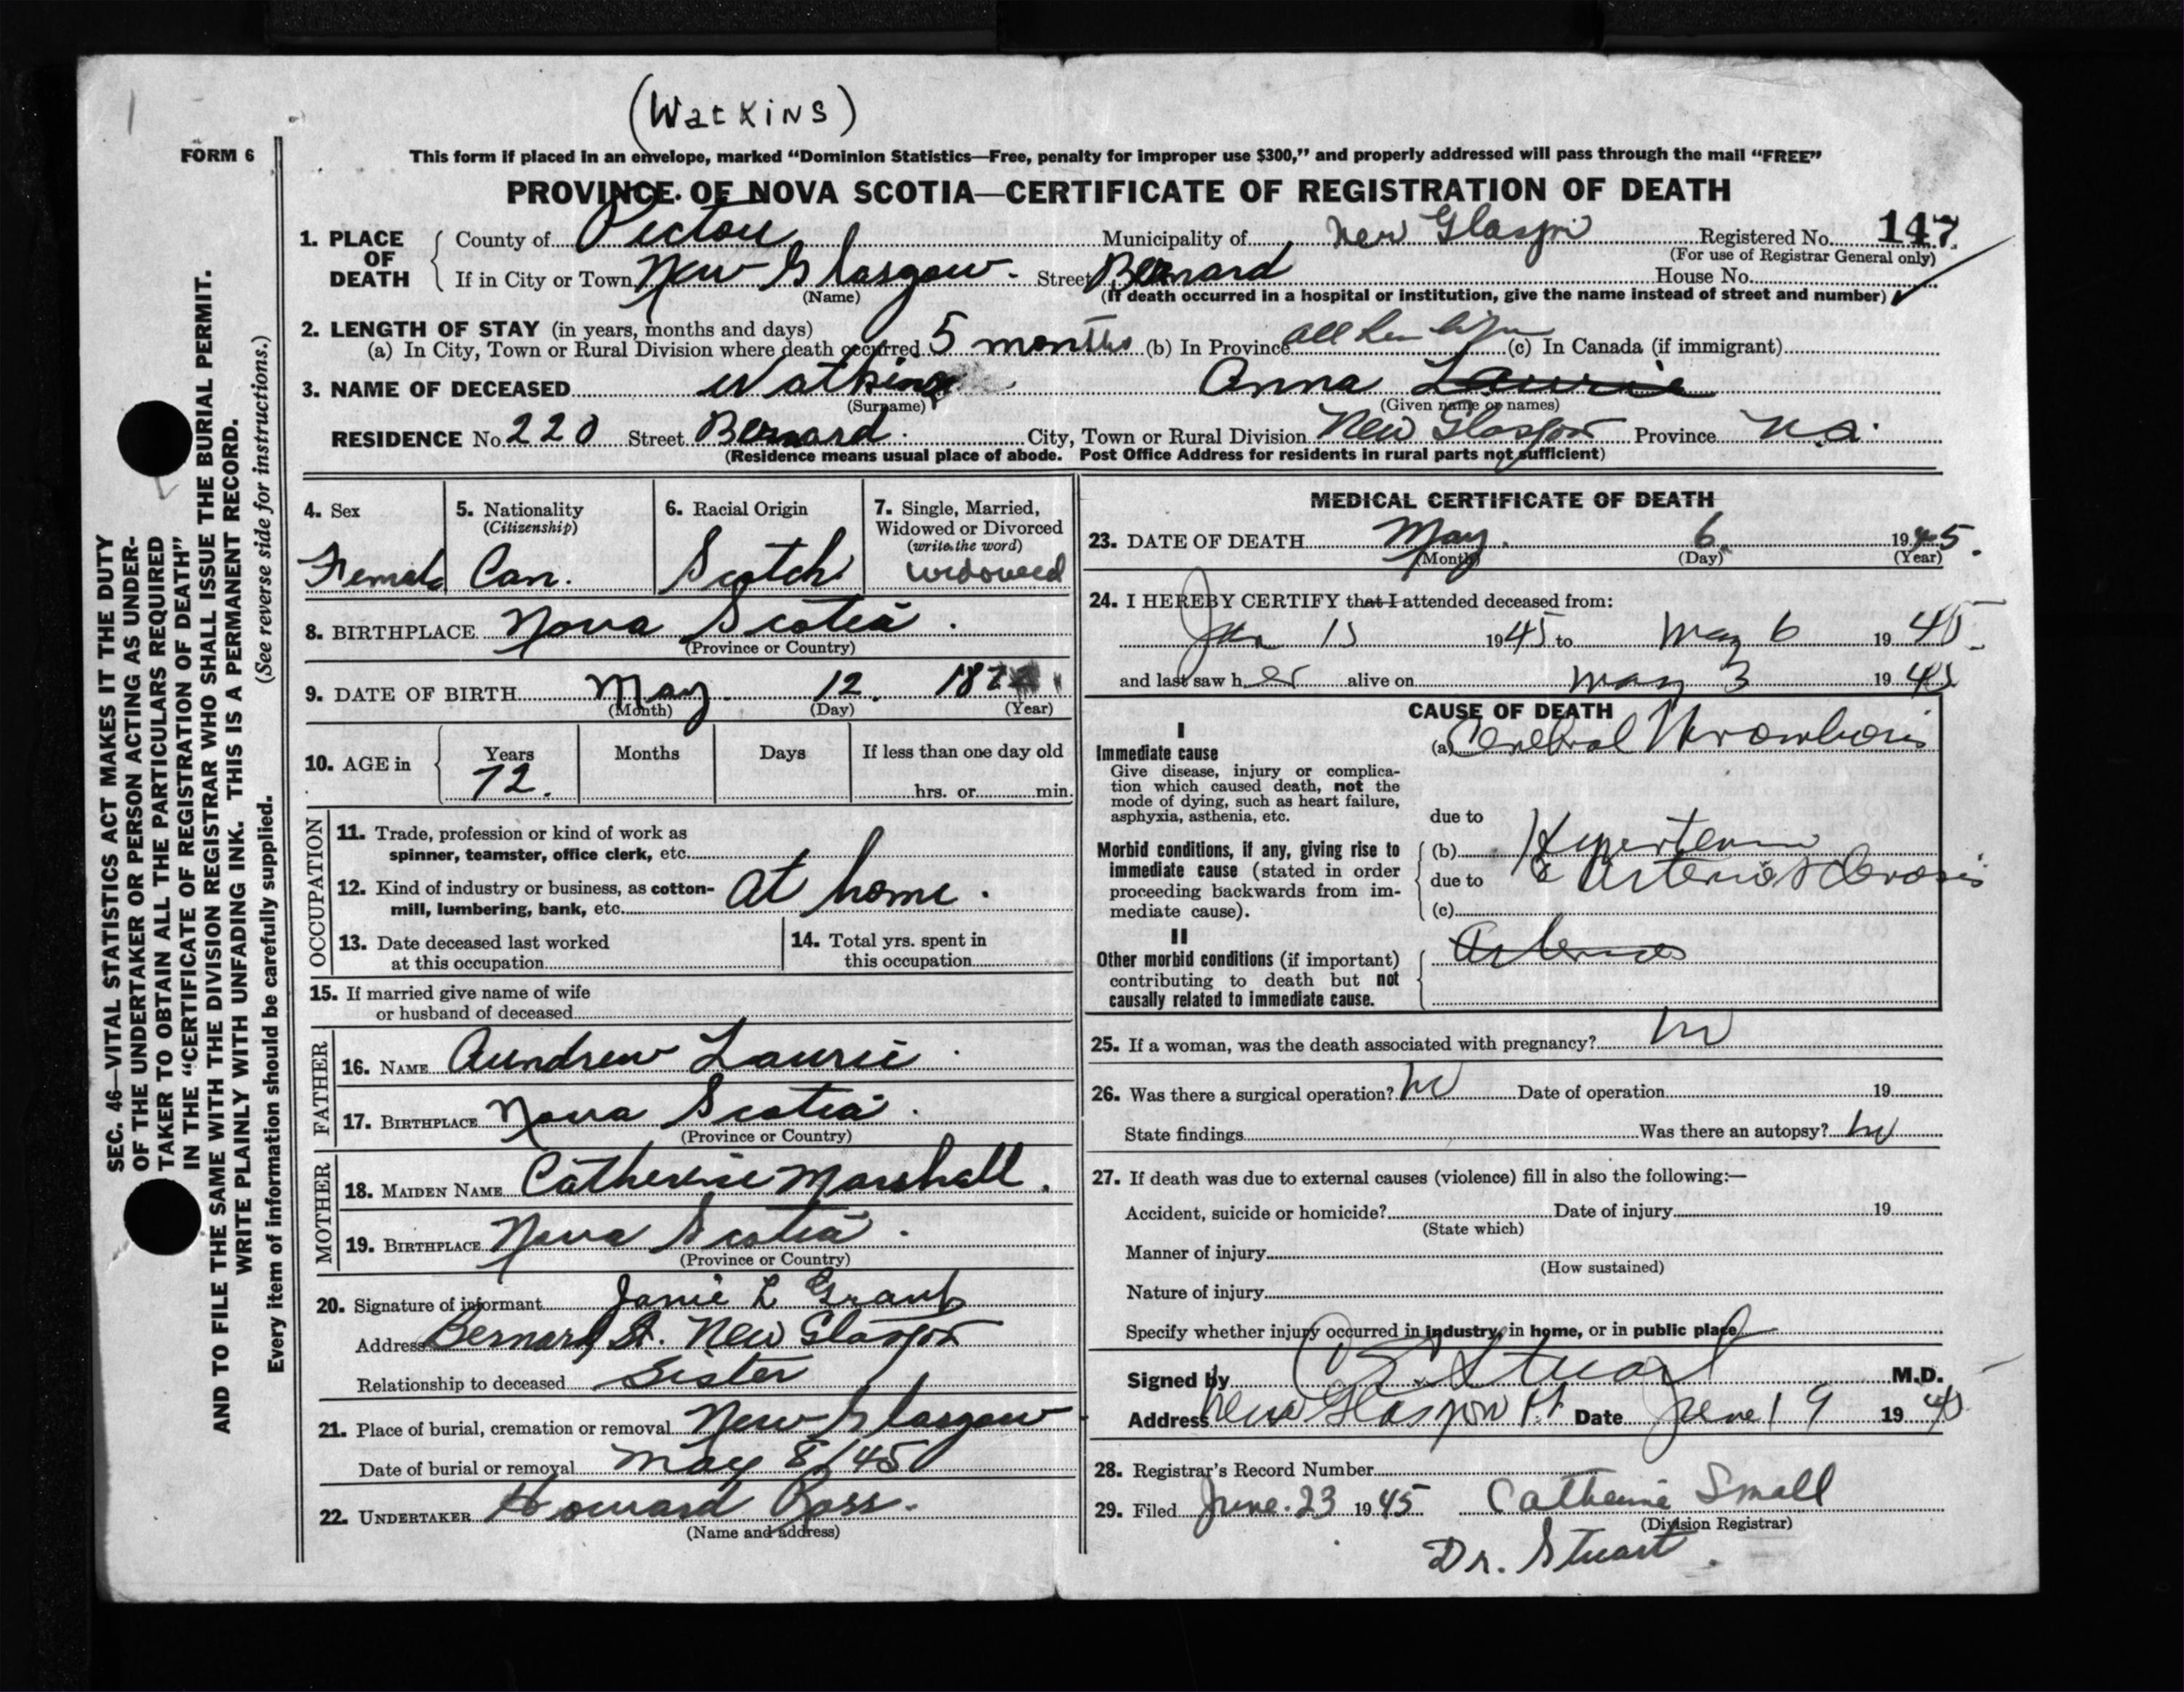 (Watkins)
FORM 6
This form if placed in an envelope, marked "Dominion Statistics—Free, penalty for improper use $300," and properly addressed will pass through the mail "FREE"
PROVINCE OF NOVA SCOTIA—CERTIFICATE OF REGISTRATION OF DEATH
1. PLACE OF DEATH { County of Pictou Municipality of New Glasgow Registered No. 147
(For use of Registrar General only)
If in City or Town New Glasgow. Street Bernard House No.
(Name) (If death occurred in a hospital or institution, give the name instead of street and number)
2. LENGTH OF STAY (in years, months and days)
(a) In City, Town or Rural Division where death occurred 5 months (b) In Province all her life (c) In Canada (if immigrant)
3. NAME OF DECEASED Watkins Anna Laurie
(Surname) (Given name or names)
RESIDENCE No. 220 Street Bernard. City, Town or Rural Division New Glasgow Province N.S.
(Residence means usual place of abode. Post Office Address for residents in rural parts not sufficient)
4. Sex Female
5. Nationality (Citizenship) Can.
6. Racial Origin Scotch
7. Single, Married, Widowed or Divorced (write the word) widowed
8. BIRTHPLACE Nova Scotia.
(Province or Country)
9. DATE OF BIRTH May 12. 187
(Month) (Day) (Year)
10. AGE in { Years Months Days If less than one day old
72. hrs. or min.
OCCUPATION
11. Trade, profession or kind of work as
spinner, teamster, office clerk, etc.
12. Kind of industry or business, as cotton-
mill, lumbering, bank, etc. at home.
13. Date deceased last worked
at this occupation
14. Total yrs. spent in
this occupation
15. If married give name of wife
or husband of deceased
FATHER
16. NAME Aundrew Laurie.
17. BIRTHPLACE Nova Scotia.
(Province or Country)
MOTHER
18. MAIDEN NAME Catherine Marshall.
19. BIRTHPLACE Nova Scotia.
(Province or Country)
20. Signature of informant Janie L Grant
Address Bernard St. New Glasgow
Relationship to deceased Sister
21. Place of burial, cremation or removal New Glasgow
Date of burial or removal May 8/45
22. UNDERTAKER Howard Ross.
(Name and address)
MEDICAL CERTIFICATE OF DEATH
23. DATE OF DEATH May. 6 1945.
(Month) (Day) (Year)
24. I HEREBY CERTIFY that I attended deceased from:
Jan 15 1945 to May 6 1945
and last saw her alive on May 3 1945
CAUSE OF DEATH
I
Immediate cause (a) Cerebral Thrombosis
Give disease, injury or complica-
tion which caused death, not the
mode of dying, such as heart failure,
asphyxia, asthenia, etc.
due to
Morbid conditions, if any, giving rise to
immediate cause (stated in order
proceeding backwards from im-
mediate cause).
(b) Hypertension
due to & Arteriosclerosis
(c)
II
Other morbid conditions (if important)
contributing to death but not
causally related to immediate cause.
25. If a woman, was the death associated with pregnancy? No
26. Was there a surgical operation? No Date of operation 19
State findings Was there an autopsy? No
27. If death was due to external causes (violence) fill in also the following:—
Accident, suicide or homicide? Date of injury 19
(State which)
Manner of injury
(How sustained)
Nature of injury
Specify whether injury occurred in industry, in home, or in public place
Signed by Stuart M.D.
Address New Glasgow Date June 19 1945
28. Registrar's Record Number
29. Filed June. 23 1945 Catherine Small
(Division Registrar)
Dr. Stuart.
SEC. 46—VITAL STATISTICS ACT MAKES IT THE DUTY
OF THE UNDERTAKER OR PERSON ACTING AS UNDER-
TAKER TO OBTAIN ALL THE PARTICULARS REQUIRED
IN THE "CERTIFICATE OF REGISTRATION OF DEATH"
AND TO FILE THE SAME WITH THE DIVISION REGISTRAR WHO SHALL ISSUE THE BURIAL PERMIT.
WRITE PLAINLY WITH UNFADING INK. THIS IS A PERMANENT RECORD.
(See reverse side for instructions.)
Every item of information should be carefully supplied.